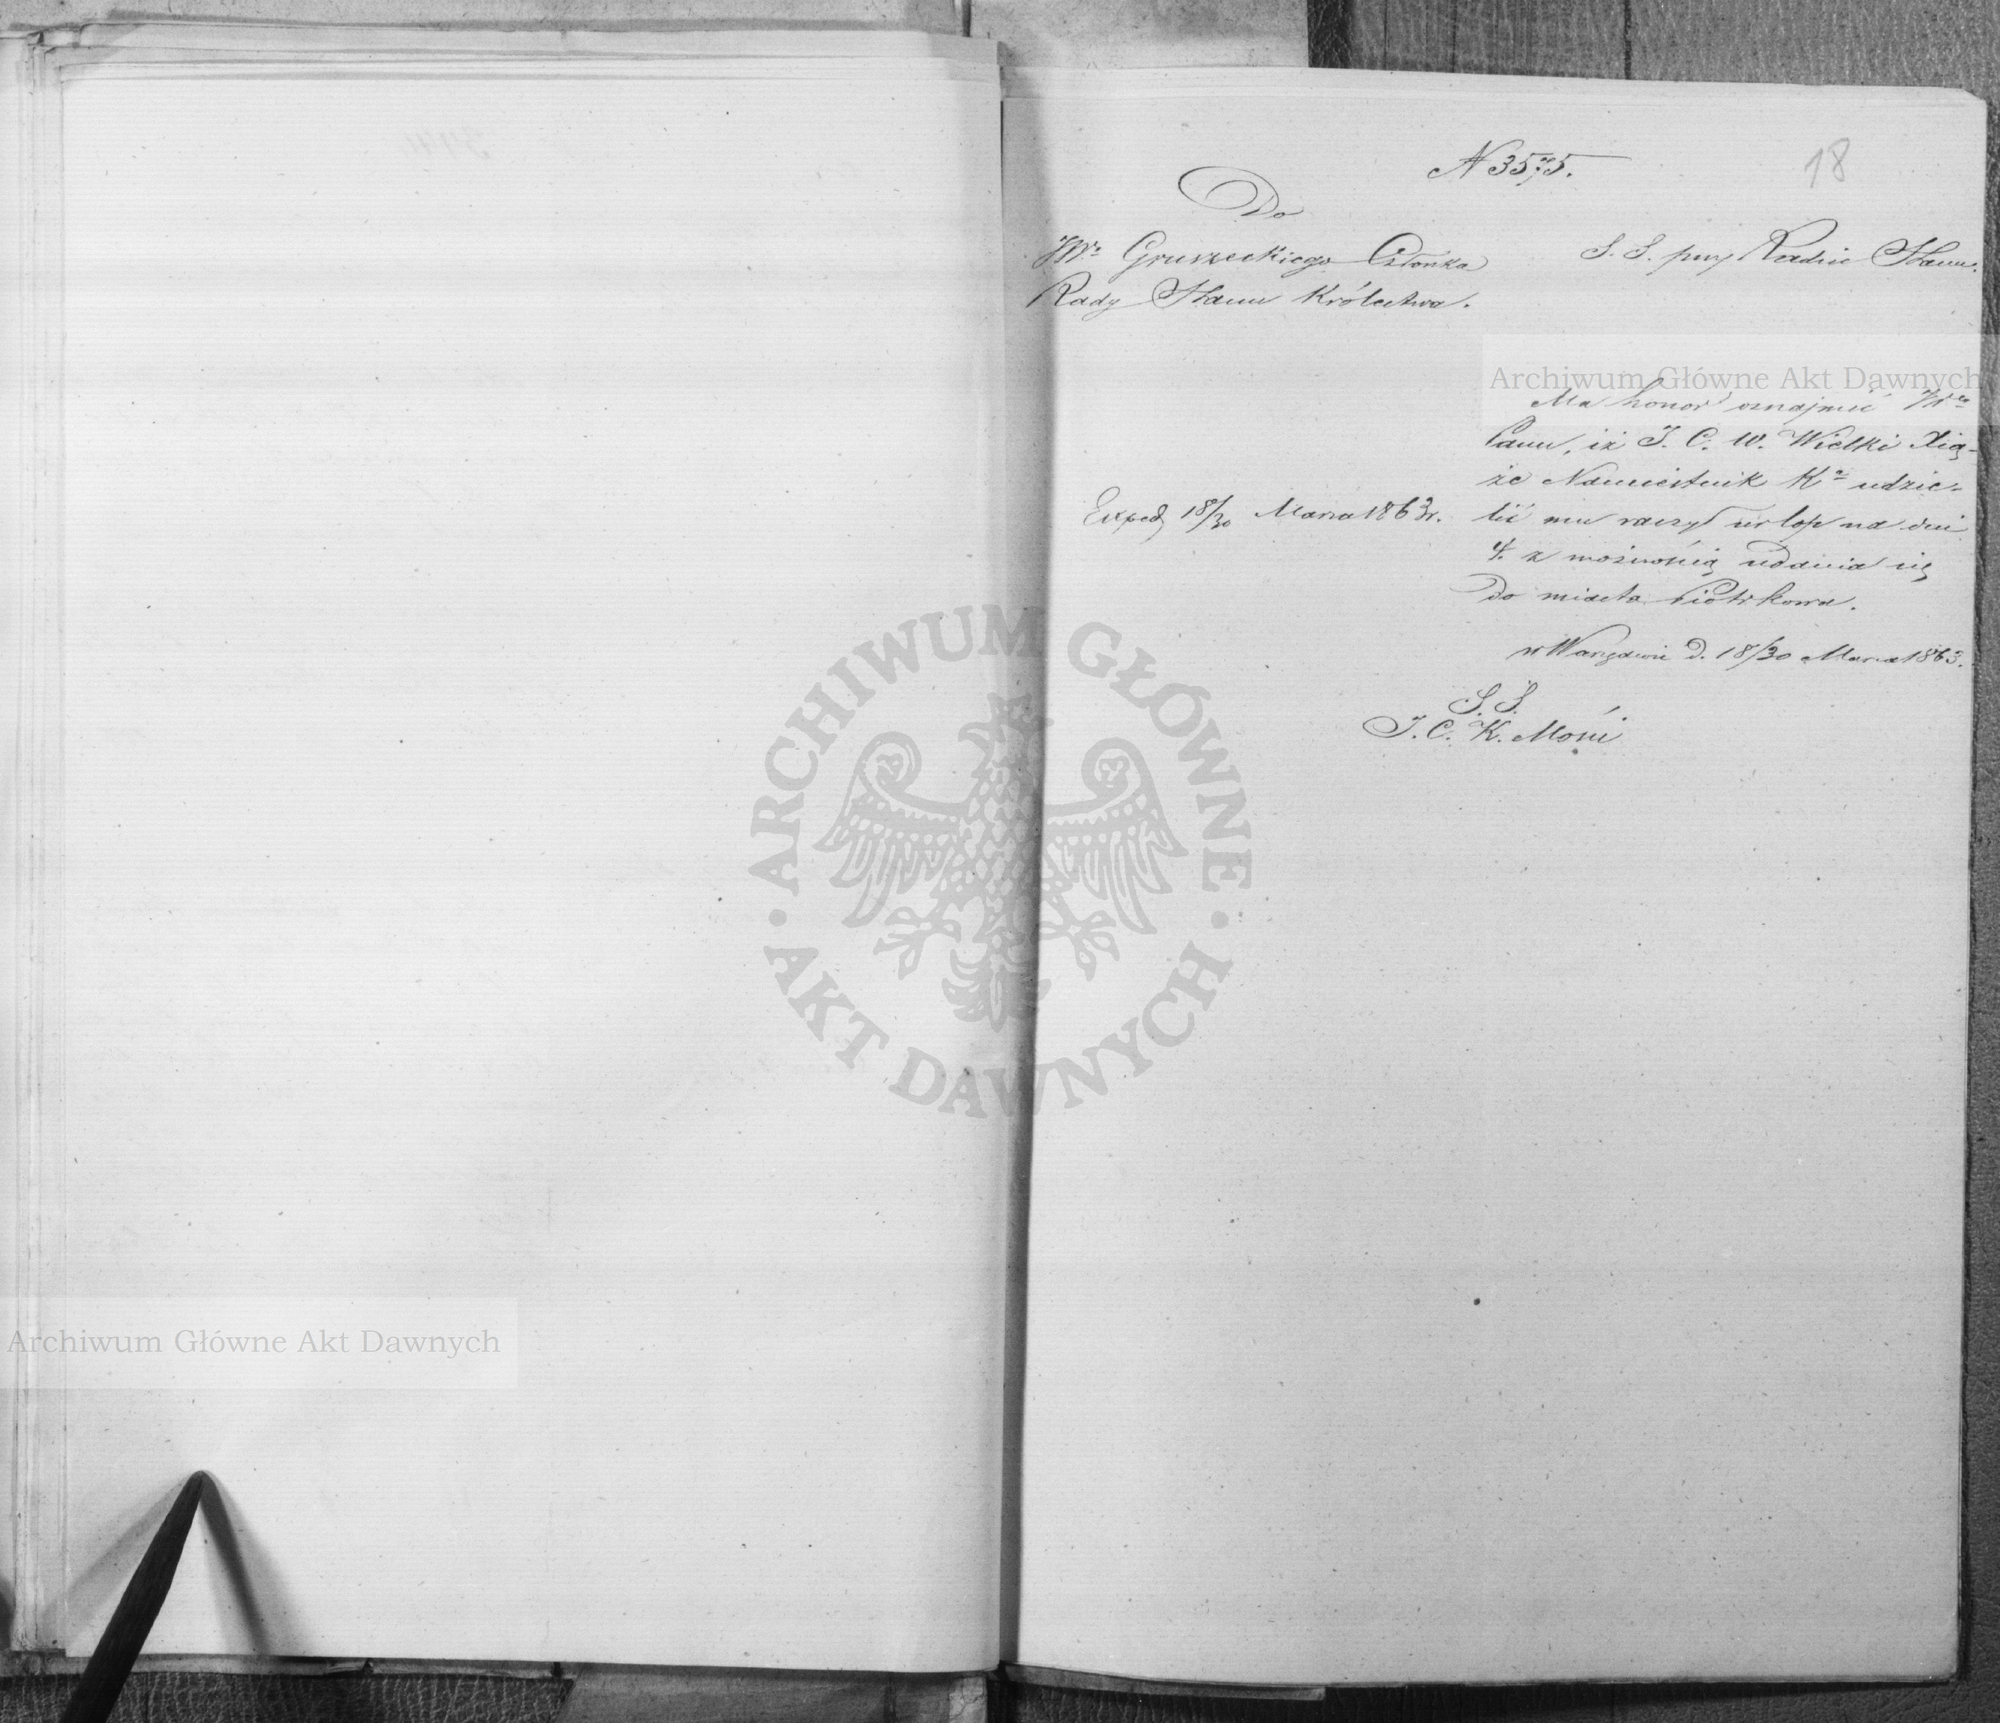 N 3575.
18
Do
JWo Gruszeckiego Członka
Rady Stanu Królestwa.
S. S. przy Radzie Stanu.
Ma honor oznajmić JWu
Panu, iż J. C. W. Wielki Xią-
że Namiestnik Ka udzie-
lić mu raczył urlop na dni
4. z możnością udania się
Do miasta Piotrkowa.
Exped. 18/30 Marca 1863 r.
w Warszawie D. 18/30 Marca 1863.
S. S.
J. C. K. Mości
Archiwum Główne Akt Dawnych
Archiwum Główne Akt Dawnych
ARCHIWUM GŁÓWNE · AKT DAWNYCH ·